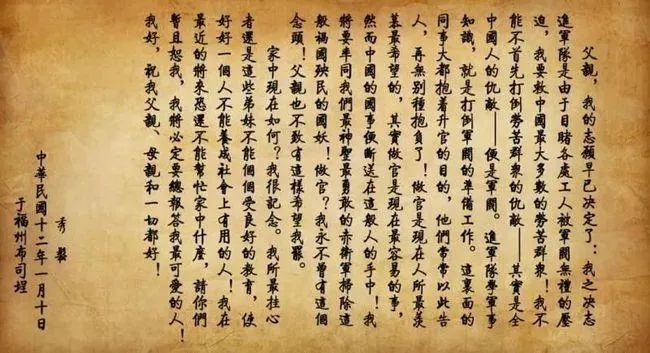 父親，我的志願早已決定了：我之決志
進軍隊是由于目睹各處工人被軍閥無禮的壓
迫，我要救中國最大多數的勞苦群衆！我不
能不首先打倒勞苦群衆的仇敵——其實是全
中國人的仇敵——便是軍閥。進軍隊學軍事
知識，就是打倒軍閥的準備工作。這裏面的
同事大都抱着升官的目的，他們常常以此告
人，再無別種抱負了！做官是現在人所最羨
慕最希望的，其實做官是現在最容易的事，
然而中國的國事便斷送在這般人的手中！我
將要率同我們最神聖最勇敢的赤衛軍掃除這
般禍國殃民的國妖！做官？我永不曾有這個
念頭！父親也不致有這樣希望我罷。
家中現在如何？我很記念。我所最挂心
者還是這些弟妹不能個個受良好的教育，使
好好一個人不能養成社會上有用的人！我在
最近的將來恐還不能幫忙家中什麼，請你們
暫且恕我，我將必定要總報答我最可愛的人！
我好，祝我父親、母親和一切都好！
秀鬆
中華民國十二年一月十日
于福州布司埕